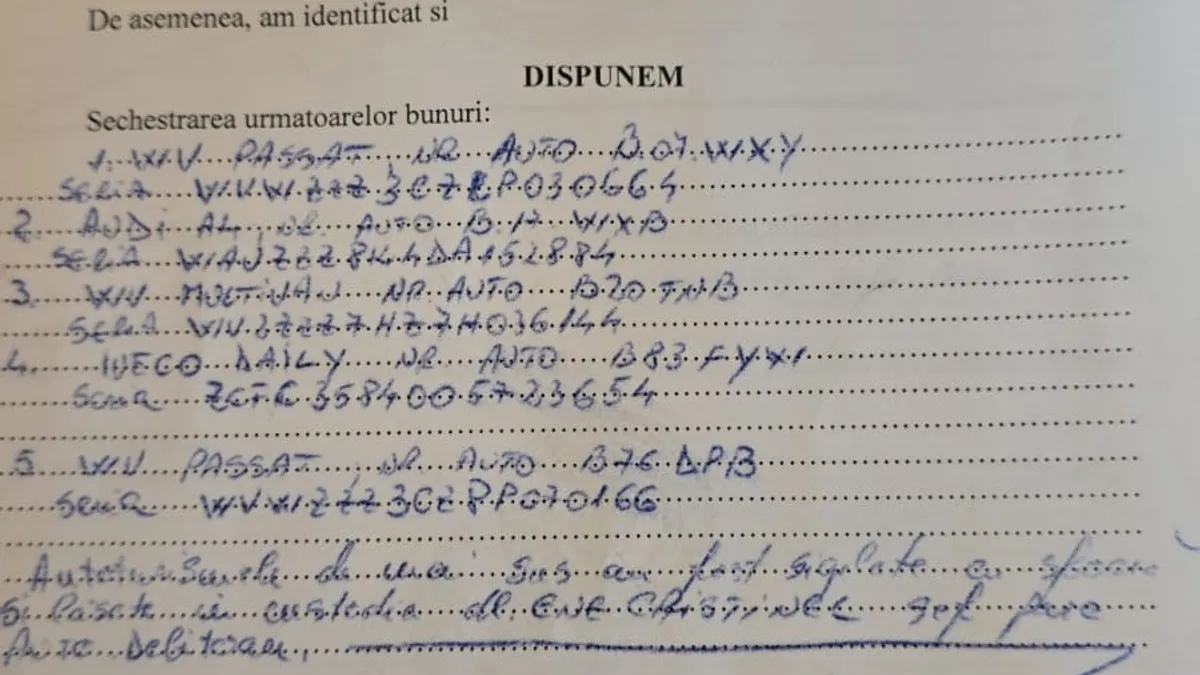 De asemenea, am identificat si
DISPUNEM
Sechestrarea urmatoarelor bunuri:
1. W.V. PASSAT, NR AUTO B.07.WXY
SERIA WVWZZZ3CZEP030664
2. AUDI A4, NR. AUTO B.17 WXB
SERIA WAUZZZ8K4DA152884
3. WV MULTIVAN NR. AUTO B20
SERIA WV2ZZZ7HZ7H036144
4. IVECO DAILY NR AUTO B83 FYX
Seria ZCFC3584005723654
5. W.V. PASSAT, NR. AUTO B76 DPB
Seria WVWZZZ3CZ8P070166
Autoturismele de mai sus au fost sigilate cu sfoara
si lasate in custodia dl. ENE CRISTINEL sef parc
Auto Debitoare,